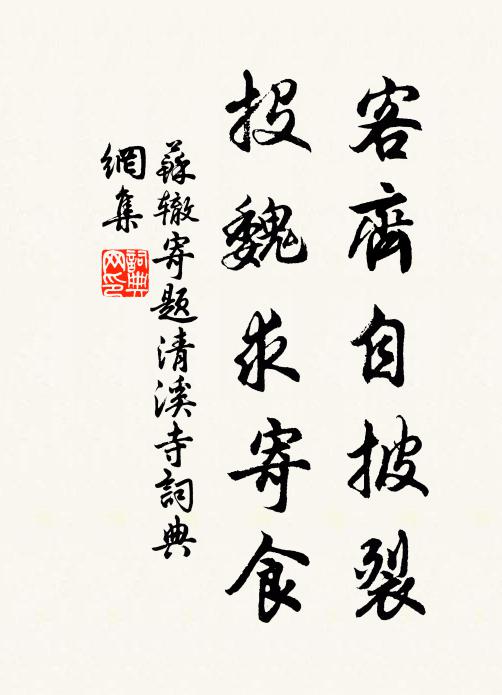 客齊自披裂
投魏求寄食
蘇辙寄题清溪寺詞典
網集
詞典
网印